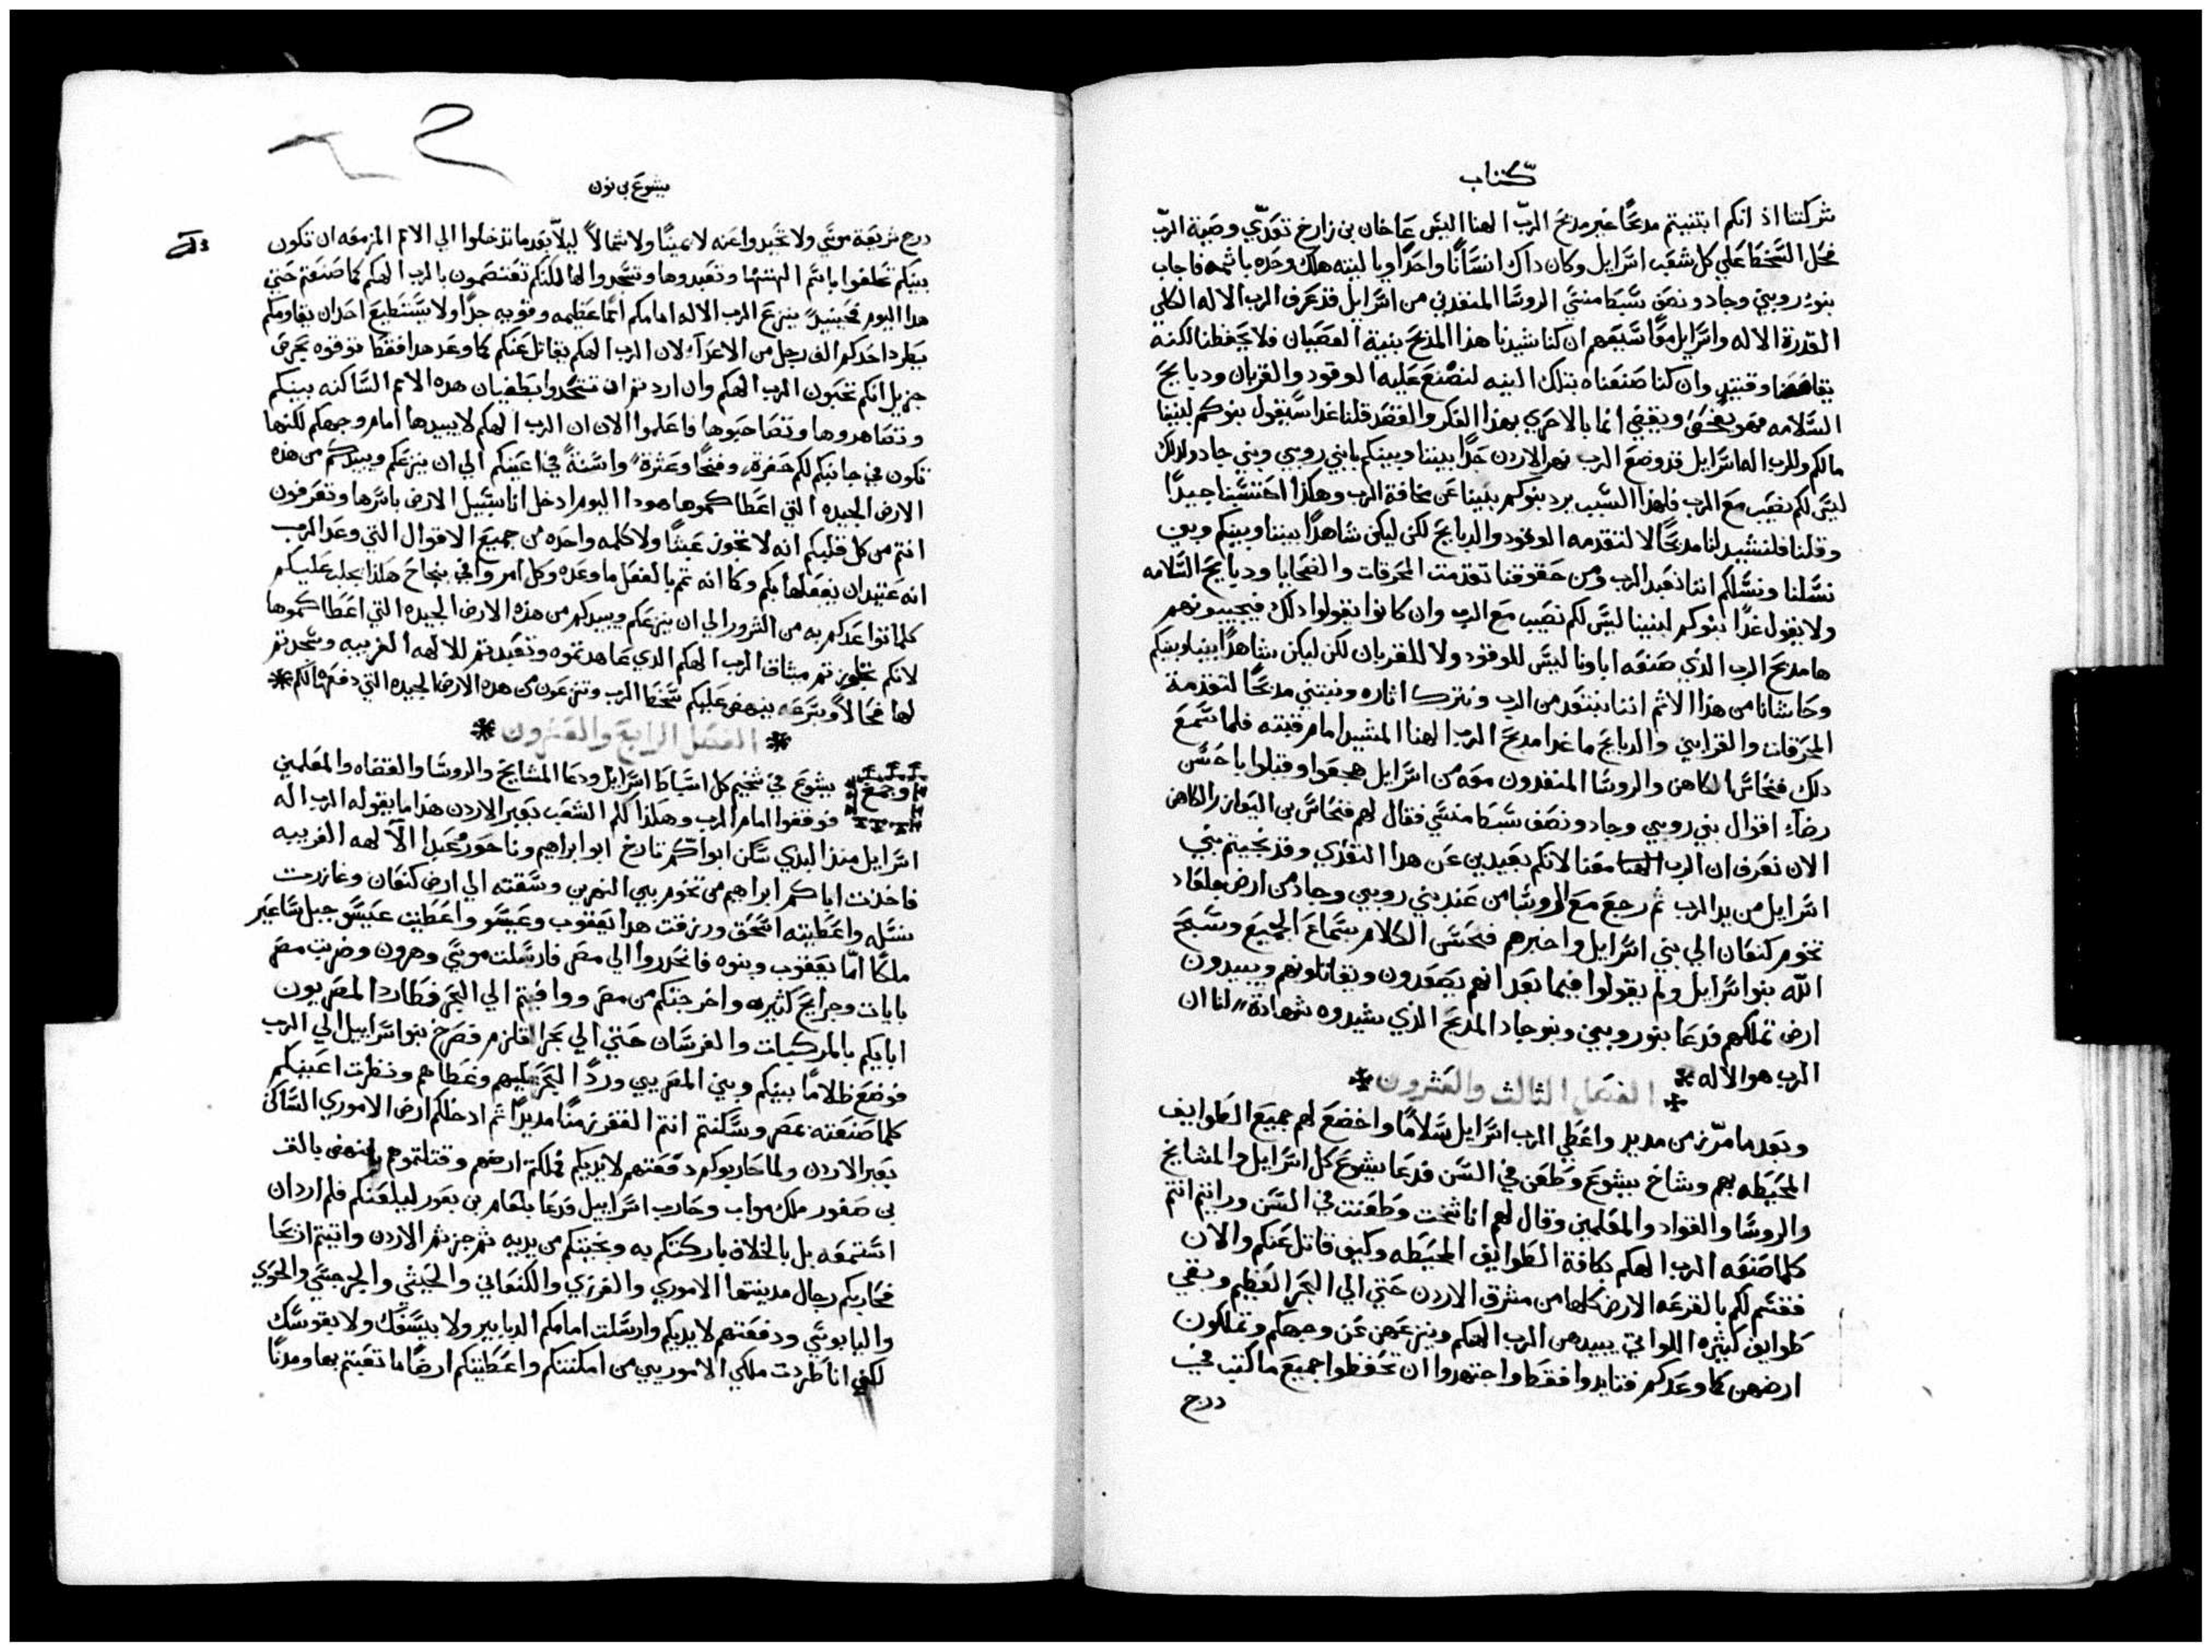 كتاب
شركتنا اذ انكم ابتنيتم مدبحًا غير مدبح الربّ الهنا اليس عاخان بن زارخ تعدّي وصية الربّ
فحل السخط علي كل شعب اسرايل وكان داك انسانًا واحدًا ويا ليته هلك وحده باثمه فاجاب
بنو روبين وجاد ونصف سبط منسي الروسا المنفدين من اسرايل قد عرف الرب الاله الكلي
القدرة الاله واسرايل معًا سيفهم ان كنا شيدنا هذا المدبح بنية العصيان فلا يحفظنا لكنه
يقاصصنا وقتيدٍ وان كنا صنعناه بتلك النيه لنصنع عليه الوقود والقربان ودبايح
السلامه فهو يفحص ويقضي انما بالاحري بهذا الفكر والقصد قلنا غدا سيقول بنوكم لبنينا
مالكم وللرب اله اسرايل قد وضع الرب نهر الاردن حدًا بيننا وبينكم يا بني روبين وبني جاد ولدلك
ليس لكم نصيب مع الرب فلهذا السبب يرد بنوكم بنينا عن مخافة الرب وهكذا احتسبنا جيدًا
وقلنا فلنشيد لنا مدبحًا لا لتقدمه الوقود والدبايح لكن ليكن شاهدًا بيننا وبينكم وبين
نسلنا ونسلكم اننا نعبد الرب ومن حقوقنا تقدمت المحرقات والضحايا ودبايح السلامه
ولا يقول غدًا بنوكم لبنينا ليس لكم نصيب مع الرب وان كانوا يقولوا دلك فيجيبونهم
ها مدبح الرب الذي صنعه اباونا ليس للوقود ولا للقربان لكن ليكن شاهدًا بيننا وبينكم
وحاشانا من هذا الاثم اننا نبتعد من الرب ونترك اثاره ونبتني مدبحًا لتقدمة
المحرقات والقرابين والدبايح ما عدا مدبح الرب الهنا المشيد امام قبته فلما سمع
دلك فنحاس الكاهن والروسا المنفدون معه من اسرايل هجعوا وقبلوا باحسن
رضاء اقوال بني روبين وجاد ونصف سبط منسي فقال لهم فنحاس بن اليعازر الكاهن
الان نعرف ان الرب معنا لانكم بعيدين عن هدا التعدي وقد نجيتم بني
اسرايل من يد الرب ثم رجع مع الروسا من عند بني روبين وجاد من ارض جلعاد
تخوم كنعان الي بني اسرايل واخبرهم فحسن الكلام بسماع الجميع وسبح
الله بنو اسرايل ولم يقولوا فيما بعد انهم يصعدون ويقاتلونهم ويبيدون
ارض تملكهم فدعا بنو روبين وبنو جاد المدبح الذي شيدوه شهادة لنا ان
الرب هو الاله
الفصل الثالث والعشرون
وبعد ما مرّ زمن مديد واعطي الرب اسرايل سلامًا واخضع لهم جميع الطوايف
المحيطه بهم وشاخ يشوع وطعن في السن فدعا يشوع كل اسرايل والمشايخ
والروسا والقواد والمعلمين وقال لهم انا شخت وطعنت في السن ورايتم انتم
كلما صنعه الرب الهكم بكافة الطوايف المحيطه وكيف قاتل عنكم والان
فقسم لكم بالقرعه الارض كلها من مشرق الاردن حتي الي البحر العظيم وبقي
طوايف كثيره اللواتي يبيدهن الرب الهكم وينزعهن عن وجهكم وتملكون
ارضهن كما وعدكم فتايدوا فقط واجتهدوا ان تحفظوا جميع ما كتب في
درج
يشوع بن نون
درج شريعة موسي ولا تحيدوا عنه لا يمينًا ولا شمالاً ليلاّ بعد ما تدخلوا الي الامم المزمعه ان تكون
بينكم تحلفوا باسم الهتها وتعبدوها وتسجدوا لها لكنكم تعتصمون بالرب الهكم كما صنعتم حتي
هدا اليوم فحينيدٍ ينزع الرب الاله امامكم اممًا عظيمه وقويه جدًا ولا يستطيع احد ان يقاومكم
يطرد احدكم الف رجل من الاعداء لان الرب الهكم يقاتل عنكم كما وعد هدا فقط توقوه بحرص
جزيل انكم تحبون الرب الهكم وان اردتم ان تتحدوا بطغيان هده الامم الساكنه بينكم
وتصاهروها وتصاحبوها فاعلموا الان ان الرب الهكم لا يبيدها امام وجهكم لكنها
تكون في جانبكم لكم حفرة وفخًا وعثرة واسنةً في اعينكم الي ان ينزعكم ويبيدكم من هذه
الارض الجيده التي اعطاكموها هودا اليوم ادخل انا سبيل الارض باسرها وتعرفون
انتم من كل قلبكم انه لا تجوز عبثًا ولا كلمه واحده من جميع الاقوال التي وعد الرب
انه عتيد ان يفعلها بكم وكما انه تم بالفعل ما وعده وكل امر وافي بنجاح هكذا يجلب عليكم
كلما توعدكم به من الشرور الي ان ينزعكم ويبيدكم من هذه الارض الجيده التي اعطاكموها
لانكم تجاوزتم ميثاق الرب الهكم الدي عاهدتموه وتعبدتم للالهه الغريبه وسجدتم
لها فحالاً وبسرعه ينهض عليكم سخط الرب وتنزعون من هده الارض الجيده التي دفعها لكم
الفصل الرابع والعشرون
وجمع يشوع في شخيم كل اسباط اسرايل ودعا المشايخ والروسا والقضاه والمعلمين
فوقفوا امام الرب وهكذا كلم الشعب بعبر الاردن هذا ما يقوله الرب اله
اسرايل منذ البدي سكن ابواكم تارخ ابو ابراهيم وناحور مجبر الالهه الغريبه
فاخدت اباكم ابراهيم من تخوم بين النهرين وسقته الي ارض كنعان وغازرت
نسله واعطيته اسحق ورزقت هدا يعقوب وعيسو واعطيت عيسو جبل ساعير
ملكًا امّا يعقوب وبنوه فانحدروا الي مصر فارسلت موسي وهرون وضربت مصر
بايات وجرايح كثيره واخرجتكم من مصر ووافيتم الي البحر فطارد المصريون
ابايكم بالمركبات والفرسان حتي الي بحر القلزم فصرخ بنو اسراييل الي الرب
فوضع ظلامًا بينكم وبين المصريين وردّ البحر عليهم وغطاهم ونظرت اعينكم
كلما صنعته بمصر وسكنتم انتم القفر زمنًا مديدًا ثم ادخلكم ارض الاموري الساكن
بعبر الاردن ولما حاربوكم دفعتهم لايديكم فملكتم ارضهم وقتلتموهم فنهض بالق
بن صفور ملك مواب وحارب اسراييل فدعا بلعام بن بعور ليلعنكم فلم ارد ان
استمعه بل بالخلاف باركتكم به ونجيتكم من يديه ثم جزتم الاردن واتيتم اريحا
فحاربكم رجال مدينتها الاموري والفرزي والكنعاني والحيثي والجرجسي والحوي
واليابوسي ودفعتهم لايديكم وارسلت امامكم الدبابير ولا بسيفك ولا بقوسك
لكني انا طردت ملكي الاموريين من امكنتكم واعطيتكم ارضًا ما تعبتم بها ومدنًا